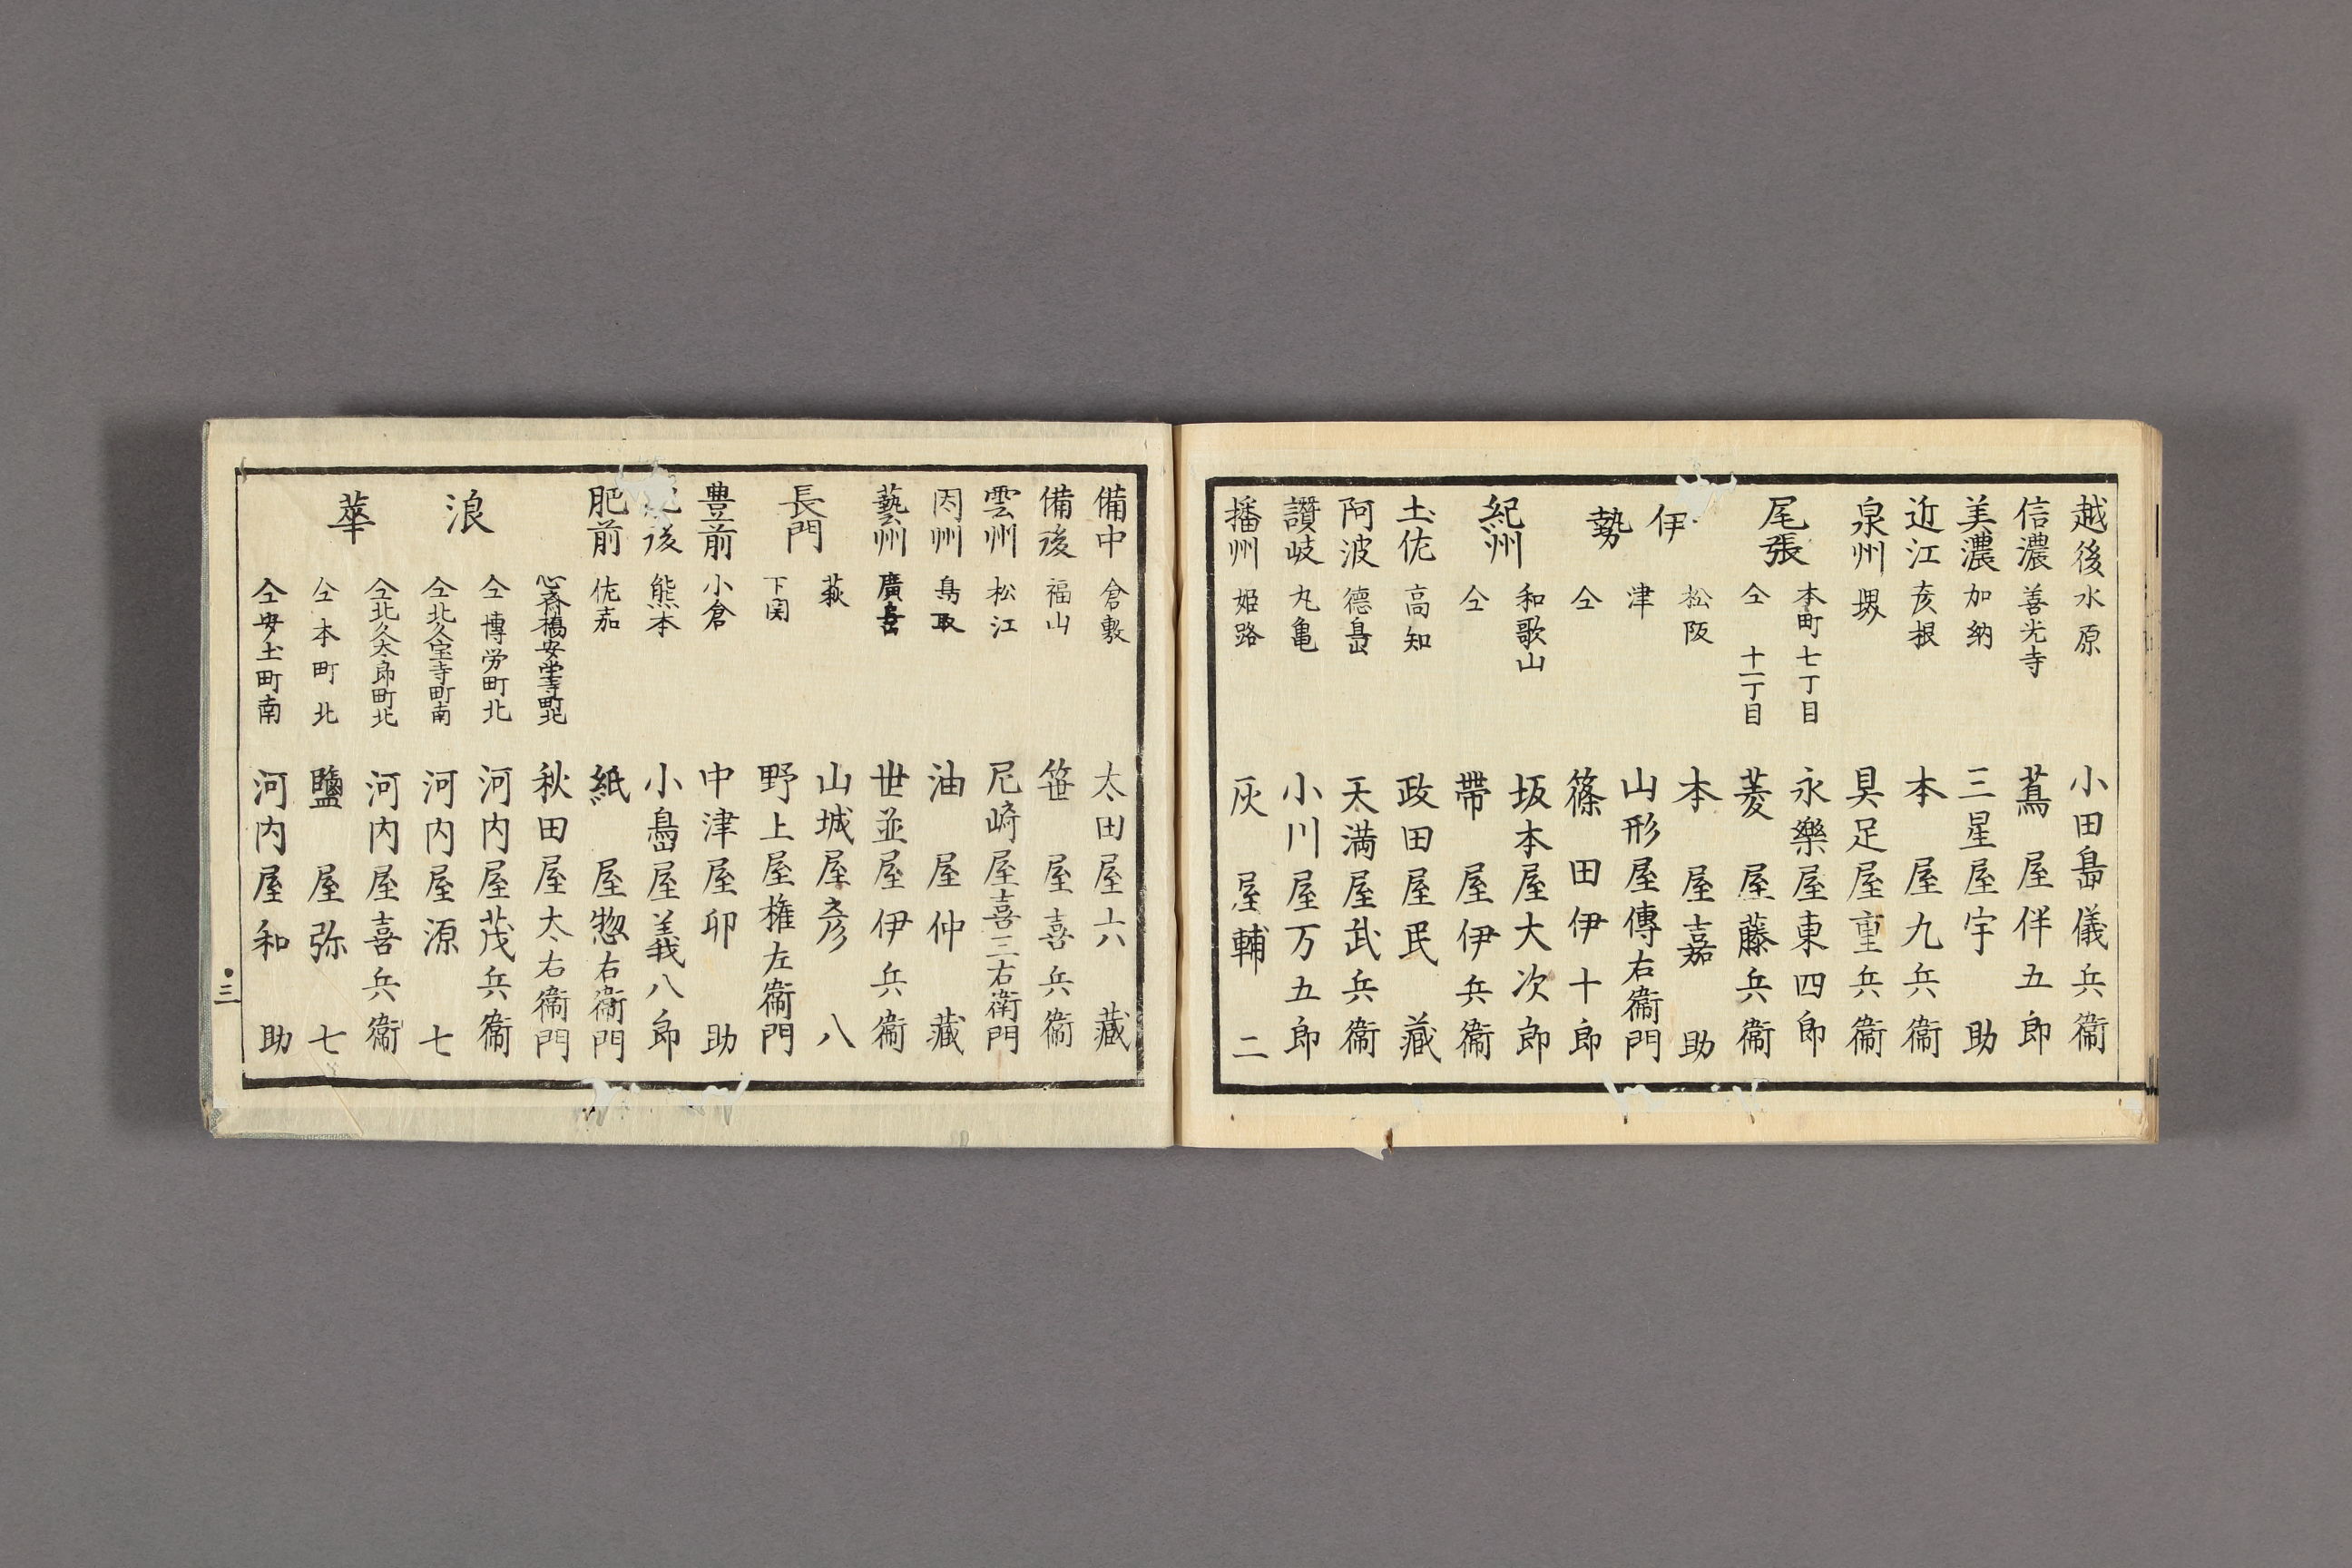 越後 水原 小田島儀兵衞
信濃 善光寺 蔦屋伴五郎
美濃 加納 三星屋宇助
近江 彦根 本屋九兵衞
泉州 堺 具足屋重兵衞
尾張 本町七丁目 永樂屋東四郎
仝 十一丁目 菱屋藤兵衞
伊勢 松阪 本屋嘉助
津 山形屋傳右衞門
仝 篠田伊十郎
紀州 和歌山 坂本屋大次郎
仝 帶屋伊兵衞
土佐 高知 政田屋民藏
阿波 德島 天満屋武兵衞
讚岐 丸亀 小川屋万五郎
播州 姫路 灰屋輔二
備中 倉敷 太田屋六藏
備後 福山 笹屋喜兵衞
雲州 松江 尼﨑屋喜三右衞門
因州 鳥取 油屋仲藏
藝州 廣島 世並屋伊兵衞
長門 萩 山城屋彦八
下関 野上屋権左衞門
豊前 小倉 中津屋卯助
肥後 熊本 小島屋義八郎
肥前 佐嘉 紙屋惣右衞門
浪華 心斎橋安堂寺町北 秋田屋太右衞門
仝 博労町北 河内屋茂兵衞
仝 北久宝寺町南 河内屋源七
仝 北久太郎町北 河内屋喜兵衞
仝 本町北 鹽屋弥七
仝 安土町南 河内屋和助
三